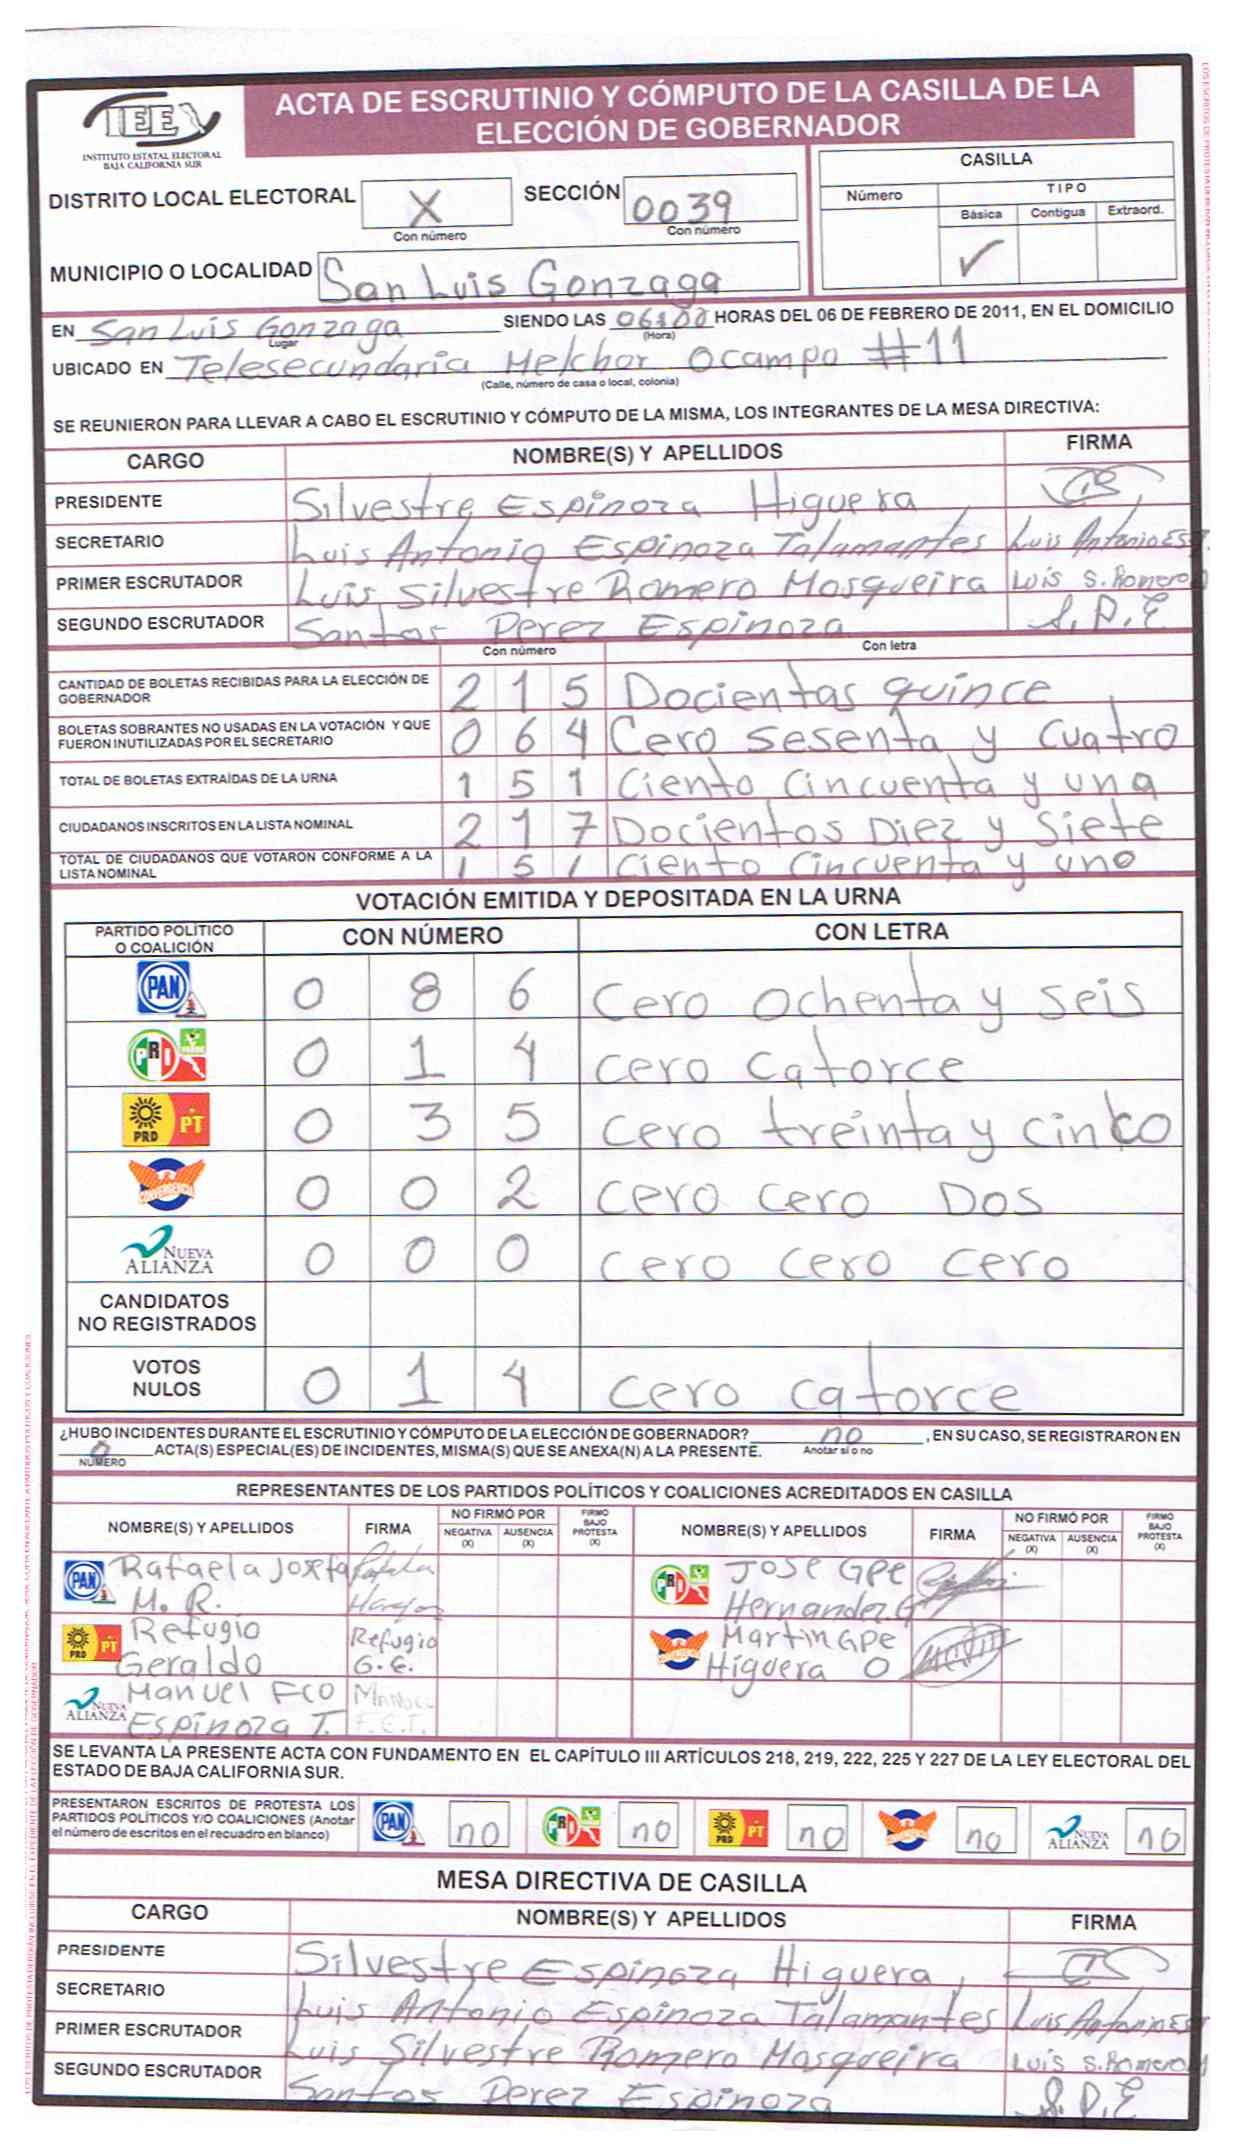 ACTA DE ESCRUTINIO Y CÓMPUTO DE LA CASILLA DE LA
ELECCIÓN DE GOBERNADOR
IEE
INSTITUTO ESTATAL ELECTORAL
BAJA CALIFORNIA SUR
DISTRITO LOCAL ELECTORAL X
Con número
SECCIÓN 0039
Con número
CASILLA
Número TIPO
Básica Contigua Extraord.
✓
MUNICIPIO O LOCALIDAD San Luis Gonzaga
EN San Luis Gonzaga SIENDO LAS 06:00 HORAS DEL 06 DE FEBRERO DE 2011, EN EL DOMICILIO
Lugar (Hora)
UBICADO EN Telesecundaria Melchor Ocampo #11
(Calle, número de casa o local, colonia)
SE REUNIERON PARA LLEVAR A CABO EL ESCRUTINIO Y CÓMPUTO DE LA MISMA, LOS INTEGRANTES DE LA MESA DIRECTIVA:
CARGO NOMBRE(S) Y APELLIDOS FIRMA
PRESIDENTE Silvestre Espinoza Higuera
SECRETARIO Luis Antonio Espinoza Talamantes Luis Antonio Es T.
PRIMER ESCRUTADOR Luis Silvestre Romero Mosqueira Luis S. Romero M
SEGUNDO ESCRUTADOR Santos Perez Espinoza S. P. E
Con número Con letra
CANTIDAD DE BOLETAS RECIBIDAS PARA LA ELECCIÓN DE
GOBERNADOR 2 1 5 Docientas quince
BOLETAS SOBRANTES NO USADAS EN LA VOTACIÓN Y QUE
FUERON INUTILIZADAS POR EL SECRETARIO 0 6 4 Cero sesenta y cuatro
TOTAL DE BOLETAS EXTRAÍDAS DE LA URNA 1 5 1 Ciento Cincuenta y una
CIUDADANOS INSCRITOS EN LA LISTA NOMINAL 2 1 7 Docientos Diez y Siete
TOTAL DE CIUDADANOS QUE VOTARON CONFORME A LA
LISTA NOMINAL 1 5 1 Ciento Cincuenta y uno
VOTACIÓN EMITIDA Y DEPOSITADA EN LA URNA
PARTIDO POLÍTICO
O COALICIÓN CON NÚMERO CON LETRA
PAN 0 8 6 Cero Ochenta y seis
PRI VERDE 0 1 4 cero catorce
PRD PT 0 3 5 cero treinta y cinco
CONVERGENCIA 0 0 2 cero cero Dos
NUEVA ALIANZA 0 0 0 cero cero cero
CANDIDATOS
NO REGISTRADOS
VOTOS
NULOS 0 1 4 cero catorce
¿HUBO INCIDENTES DURANTE EL ESCRUTINIO Y CÓMPUTO DE LA ELECCIÓN DE GOBERNADOR? no , EN SU CASO, SE REGISTRARON EN
0 ACTA(S) ESPECIAL(ES) DE INCIDENTES, MISMA(S) QUE SE ANEXA(N) A LA PRESENTE. Anotar si o no
NÚMERO
REPRESENTANTES DE LOS PARTIDOS POLÍTICOS Y COALICIONES ACREDITADOS EN CASILLA
NOMBRE(S) Y APELLIDOS FIRMA NO FIRMÓ POR NEGATIVA (X) AUSENCIA (X) FIRMO BAJO PROTESTA (X) NOMBRE(S) Y APELLIDOS FIRMA NO FIRMÓ POR NEGATIVA (X) AUSENCIA (X) FIRMO BAJO PROTESTA (X)
PAN Rafaela Josefa
M. R.
PRI VERDE JOSE GPE
Hernandez G
PRD PT Refugio Refugio
Geraldo G. E.
Martin GPE
Higuera O
NUEVA ALIANZA Manuel Fco Manuel
Espinoza T. F.E.T.
SE LEVANTA LA PRESENTE ACTA CON FUNDAMENTO EN EL CAPÍTULO III ARTÍCULOS 218, 219, 222, 225 Y 227 DE LA LEY ELECTORAL DEL
ESTADO DE BAJA CALIFORNIA SUR.
PRESENTARON ESCRITOS DE PROTESTA LOS
PARTIDOS POLÍTICOS Y/O COALICIONES (Anotar
el número de escritos en el recuadro en blanco)
PAN no PRI no PRD PT no no NUEVA ALIANZA no
MESA DIRECTIVA DE CASILLA
CARGO NOMBRE(S) Y APELLIDOS FIRMA
PRESIDENTE Silvestre Espinoza Higuera
SECRETARIO Luis Antonio Espinoza Talamantes Luis Antonio Es T
PRIMER ESCRUTADOR Luis Silvestre Romero Mosqueira Luis S. Romero M
SEGUNDO ESCRUTADOR Santos Perez Espinoza S. P. E